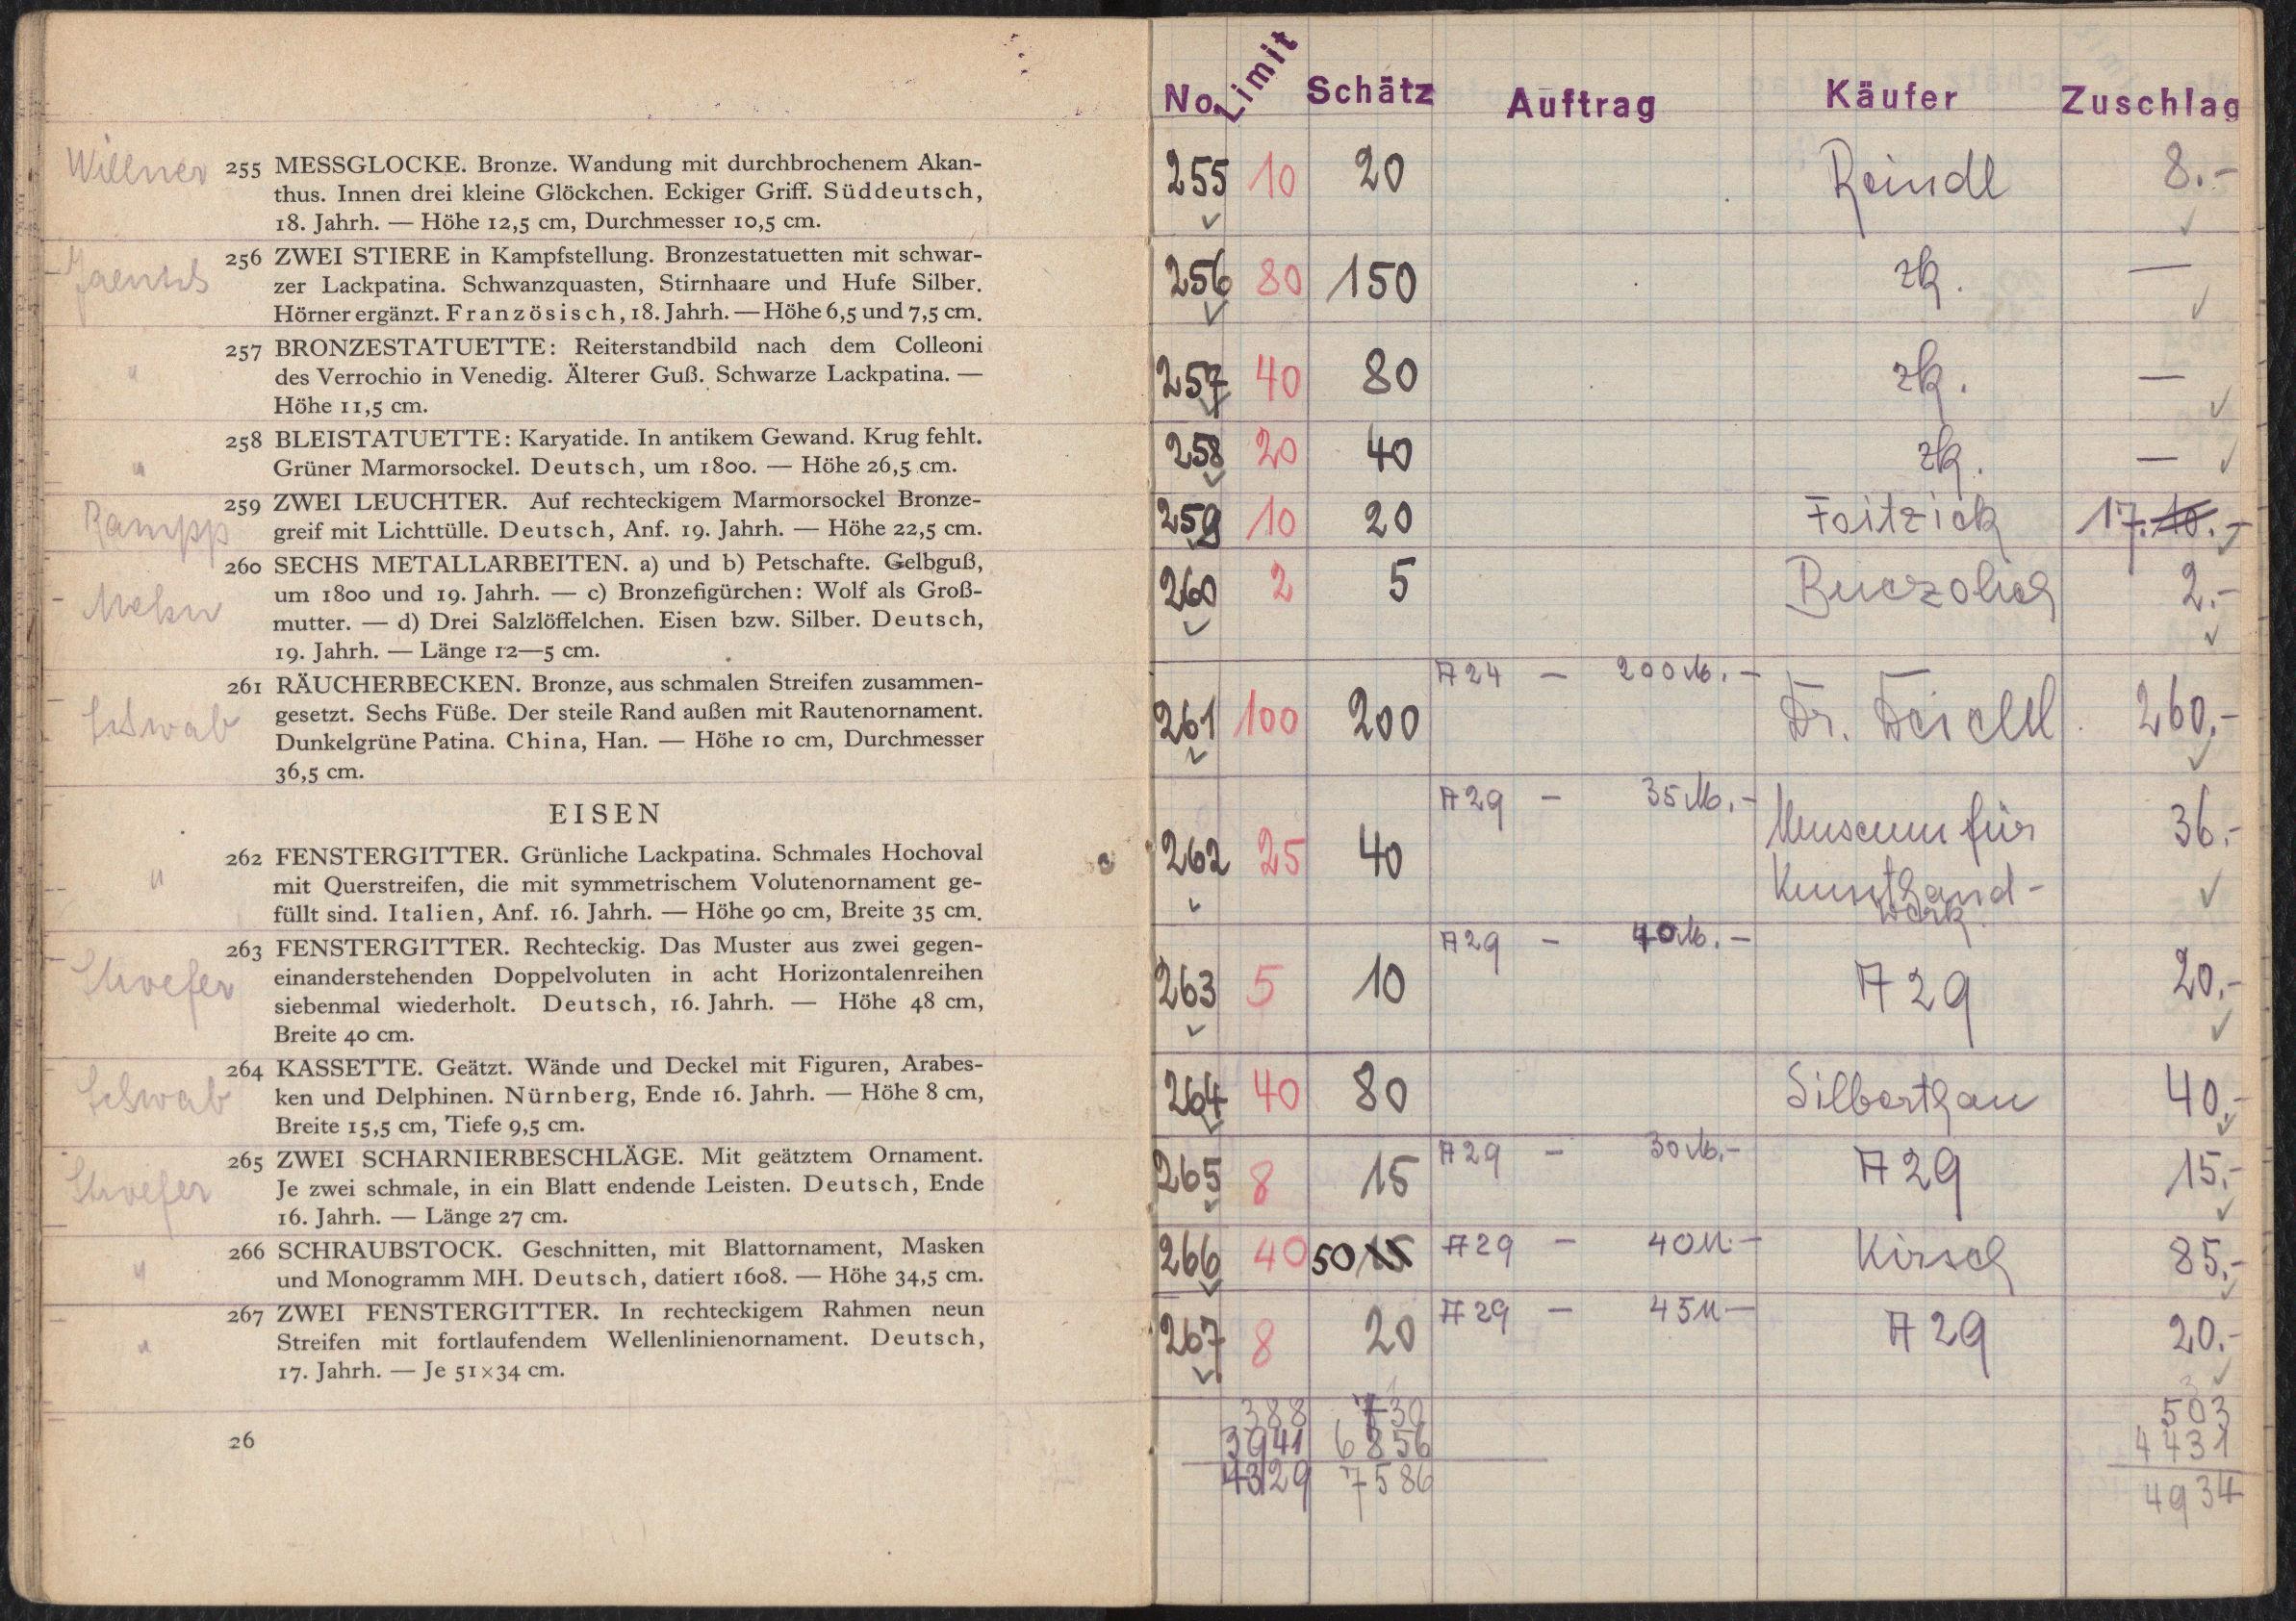 Willner
255 MESSGLOCKE. Bronze. Wandung mit durchbrochenem Akan-
thus. Innen drei kleine Glöckchen. Eckiger Griff. Süddeutsch,
18. Jahrh. — Höhe 12,5 cm, Durchmesser 10,5 cm.
256 ZWEI STIERE in Kampfstellung. Bronzestatuetten mit schwar-
zer Lackpatina. Schwanzquasten, Stirnhaare und Hufe Silber.
Hörner ergänzt. Französisch, 18. Jahrh. — Höhe 6,5 und 7,5 cm.
"
257 BRONZESTATUETTE: Reiterstandbild nach dem Colleoni
des Verrochio in Venedig. Älterer Guß. Schwarze Lackpatina. —
Höhe 11,5 cm.
"
258 BLEISTATUETTE: Karyatide. In antikem Gewand. Krug fehlt.
Grüner Marmorsockel. Deutsch, um 1800. — Höhe 26,5 cm.
Rampp
259 ZWEI LEUCHTER. Auf rechteckigem Marmorsockel Bronze-
greif mit Lichttülle. Deutsch, Anf. 19. Jahrh. — Höhe 22,5 cm.
260 SECHS METALLARBEITEN. a) und b) Petschafte. Gelbguß,
um 1800 und 19. Jahrh. — c) Bronzefigürchen: Wolf als Groß-
mutter. — d) Drei Salzlöffelchen. Eisen bzw. Silber. Deutsch,
19. Jahrh. — Länge 12—5 cm.
Schwab
261 RÄUCHERBECKEN. Bronze, aus schmalen Streifen zusammen-
gesetzt. Sechs Füße. Der steile Rand außen mit Rautenornament.
Dunkelgrüne Patina. China, Han. — Höhe 10 cm, Durchmesser
36,5 cm.
EISEN
"
262 FENSTERGITTER. Grünliche Lackpatina. Schmales Hochoval
mit Querstreifen, die mit symmetrischem Volutenornament ge-
füllt sind. Italien, Anf. 16. Jahrh. — Höhe 90 cm, Breite 35 cm.
263 FENSTERGITTER. Rechteckig. Das Muster aus zwei gegen-
einanderstehenden Doppelvoluten in acht Horizontalenreihen
siebenmal wiederholt. Deutsch, 16. Jahrh. — Höhe 48 cm,
Breite 40 cm.
Schwab
264 KASSETTE. Geätzt. Wände und Deckel mit Figuren, Arabes-
ken und Delphinen. Nürnberg, Ende 16. Jahrh. — Höhe 8 cm,
Breite 15,5 cm, Tiefe 9,5 cm.
265 ZWEI SCHARNIERBESCHLÄGE. Mit geätztem Ornament.
Je zwei schmale, in ein Blatt endende Leisten. Deutsch, Ende
16. Jahrh. — Länge 27 cm.
"
266 SCHRAUBSTOCK. Geschnitten, mit Blattornament, Masken
und Monogramm MH. Deutsch, datiert 1608. — Höhe 34,5 cm.
"
267 ZWEI FENSTERGITTER. In rechteckigem Rahmen neun
Streifen mit fortlaufendem Wellenlinienornament. Deutsch,
17. Jahrh. — Je 51×34 cm.
26
No. Limit Schätz Auftrag Käufer Zuschlag
255 10 20 Reindl 8.-
256 80 150 zk. —
257 40 80 zk. —
258 20 40 zk. —
259 10 20 Foitzick 17.- 10.-
260 2 5 Buczolich 2.-
A 24 - 200 M.-
261 100 200 Dr. Deichl 260.-
A 29 - 35 M.-
262 25 40 Museum für 36.-
Kunsthand-
werk
A 29 - 40 M.-
263 5 10 A 29 20.-
264 40 80 Silberthau 40.-
A 29 - 30 M.-
265 8 15 A 29 15.-
266 40 50 15 A 29 - 40 M.- Kirsch 85.-
A 29 - 45 M-
267 8 20 A 29 20.-
388 730 503
3941 6856 4431
4329 7586 4934